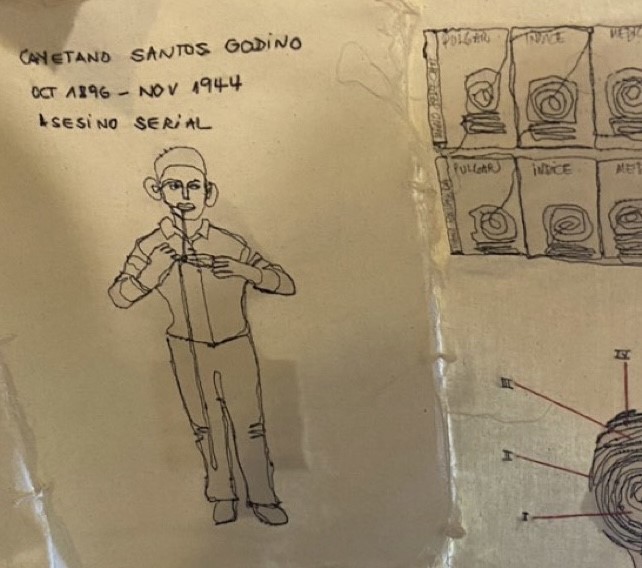 CAYETANO SANTOS GODINO
OCT 1896 – NOV 1944
ASESINO SERIAL
PULGAR INDICE MEDI
PULGAR INDICE MED
IV
III
II
I